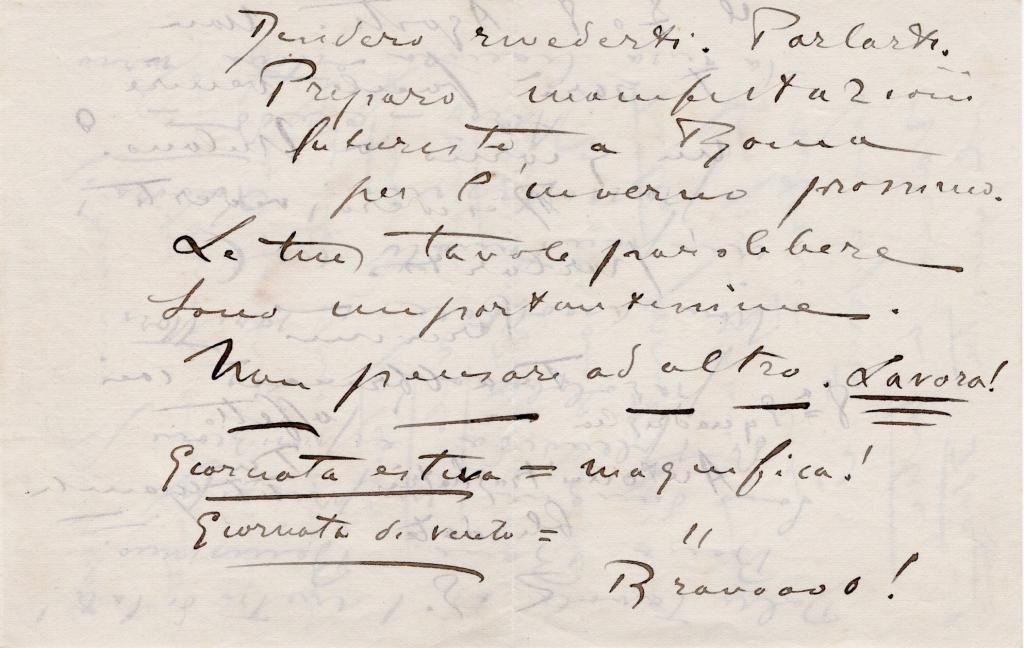 Desidero rivederti. Parlarti.
Preparo manifestazioni
futuriste a Roma
per l'inverno prossimo.
Le tue tavole parolibere
sono importantissime.
Non pensare ad altro. Lavora!
Giornata estiva = magnifica!
Giornata di vento = "
Bravoooo!